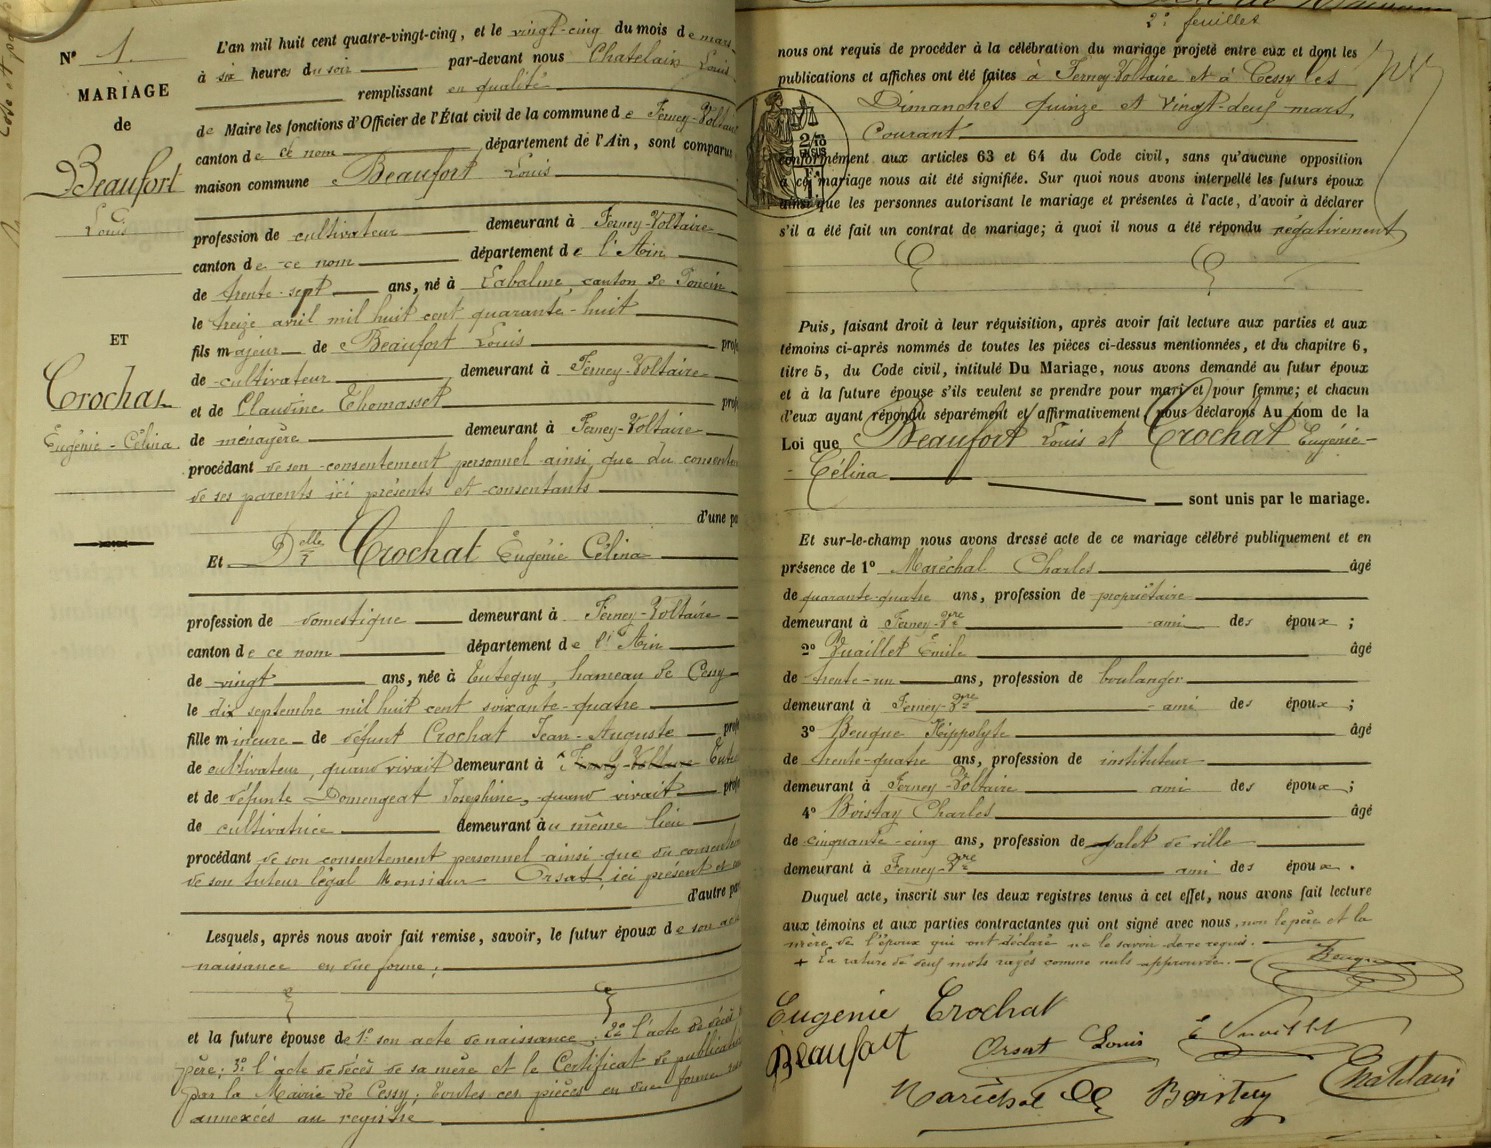 N° 1.
MARIAGE
de
Beaufort
Louis
ET
Crochat
Eugénie-Célina.
L'an mil huit cent quatre-vingt-cinq, et le vingt-cinq du mois de mars
à six heures du soir par-devant nous Chatelain Louis
remplissant en qualité
de Maire les fonctions d'Officier de l'État civil de la commune de Ferney-Voltaire
canton de ce nom département de l'Ain, sont comparus
maison commune Beaufort Louis
profession de cultivateur demeurant à Ferney-Voltaire
canton de ce nom département de l'Ain
de trente-sept ans, né à Labalme, canton de Poncin
le treize avril mil huit cent quarante-huit
fils majeur de Beaufort Louis prof
de cultivateur demeurant à Ferney-Voltaire
et de Claudine Thomasset prof
de ménagère demeurant à Ferney-Voltaire
procédant de son consentement personnel ainsi que du consente
de ses parents ici présents et consentants
d'une pa
Et Delle Crochat Eugénie Célina
profession de domestique demeurant à Ferney-Voltaire
canton de ce nom département de l'Ain
de vingt ans, née à Tutegny, hameau de Cessy
le dix septembre mil huit cent soixante-quatre
fille mineure de défunt Crochat Jean-Auguste prof
de cultivateur, quand vivait demeurant à Ferney-Voltaire
et de défunte Domengeat Josephine, quand vivait prof
de cultivatrice demeurant au même lieu
procédant de son consentement personnel ainsi que du consente
de son tuteur légal Monsieur Orsat, ici présent et
d'autre pa
Lesquels, après nous avoir fait remise, savoir, le futur époux de son acte
naissance en due forme;
et la future épouse de 1° son acte de naissance; 2° l'acte de décès
père; 3° l'acte de décès de sa mère et le Certificat de publicat
par la Mairie de Cessy; Toutes ces pièces en due forme
annexées au registre
2e feuillet
nous ont requis de procéder à la célébration du mariage projeté entre eux et dont les
publications et affiches ont été faites à Ferney-Voltaire et à Cessy les
Dimanches quinze et vingt-deux mars
courant
conformément aux articles 63 et 64 du Code civil, sans qu'aucune opposition
à ce mariage nous ait été signifiée. Sur quoi nous avons interpellé les futurs époux
ainsi que les personnes autorisant le mariage et présentes à l'acte, d'avoir à déclarer
s'il a été fait un contrat de mariage; à quoi il nous a été répondu négativement
Puis, faisant droit à leur réquisition, après avoir fait lecture aux parties et aux
témoins ci-après nommés de toutes les pièces ci-dessus mentionnées, et du chapitre 6,
titre 5, du Code civil, intitulé Du Mariage, nous avons demandé au futur époux
et à la future épouse s'ils veulent se prendre pour mari et pour femme; et chacun
d'eux ayant répondu séparément et affirmativement, nous déclarons Au nom de la
Loi que Beaufort Louis et Crochat Eugénie-
-Célina
sont unis par le mariage.
Et sur-le-champ nous avons dressé acte de ce mariage célébré publiquement et en
présence de 1° Maréchal Charles âgé
de quarante-quatre ans, profession de propriétaire
demeurant à Ferney-Vre ami des époux;
2° Vuaillet Emile âgé
de trente-un ans, profession de boulanger
demeurant à Ferney-Vre ami des époux;
3° Beuque Hippolyte âgé
de trente-quatre ans, profession de instituteur
demeurant à Ferney-Voltaire ami des époux;
4° Boistay Charles âgé
de cinquante-cinq ans, profession de valet de ville
demeurant à Ferney-Vre ami des époux.
Duquel acte, inscrit sur les deux registres tenus à cet effet, nous avons fait lecture
aux témoins et aux parties contractantes qui ont signé avec nous, non le père et la
mère de l'époux qui ont déclaré ne le savoir de ce requis.
+ La rature de deux mots rayés comme nuls approuvée. Beuque
Eugénie Crochat
Beaufort Orsat Louis E Vuaillet
Maréchal Ch Boistay Chatelain